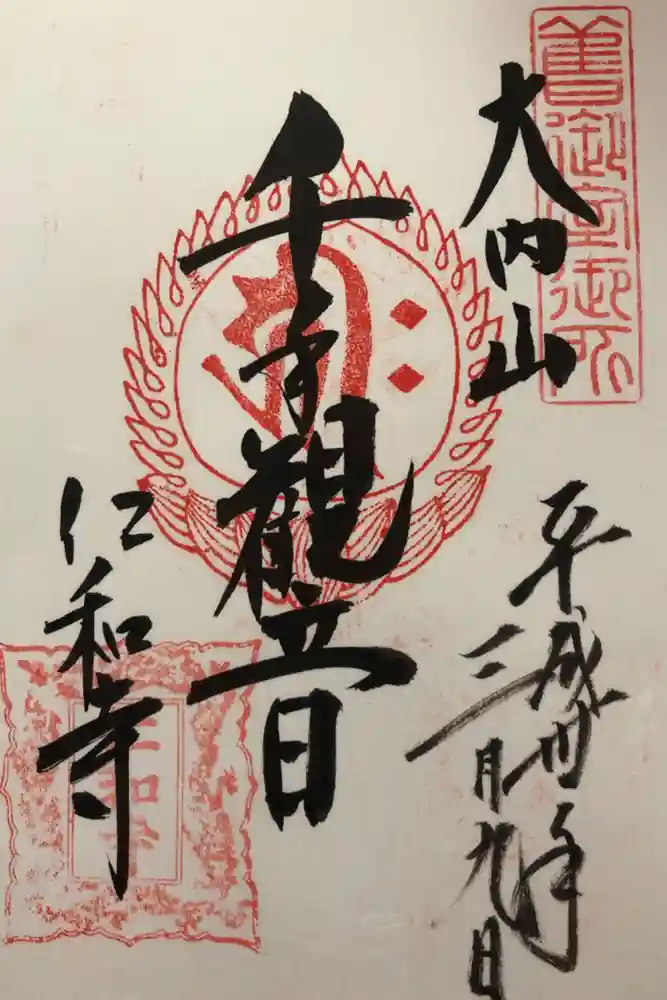 舊御室御所
大内山
平成卅年
三月九日
千手観音
仁和寺
仁和寺